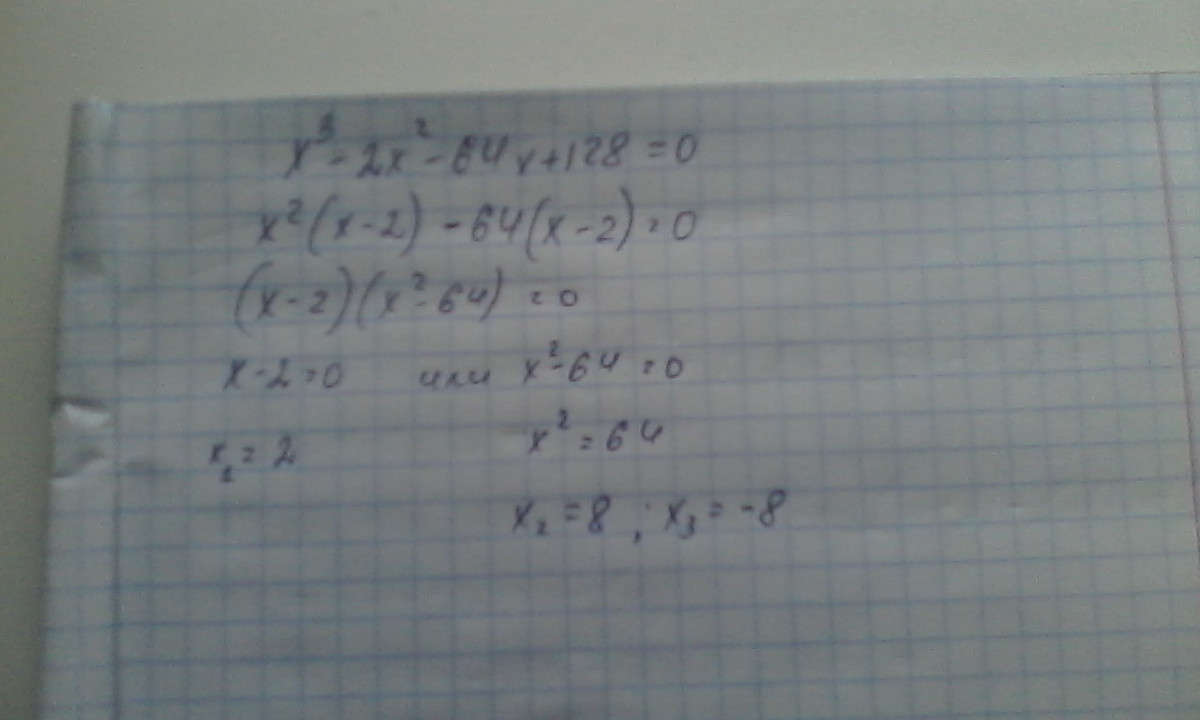 x³-2x²-64x+128=0
x²(x-2)-64(x-2)=0
(x-2)(x²-64)=0
x-2=0 или x²-64=0
x₁=2 x²=64
x₂=8; x₃=-8